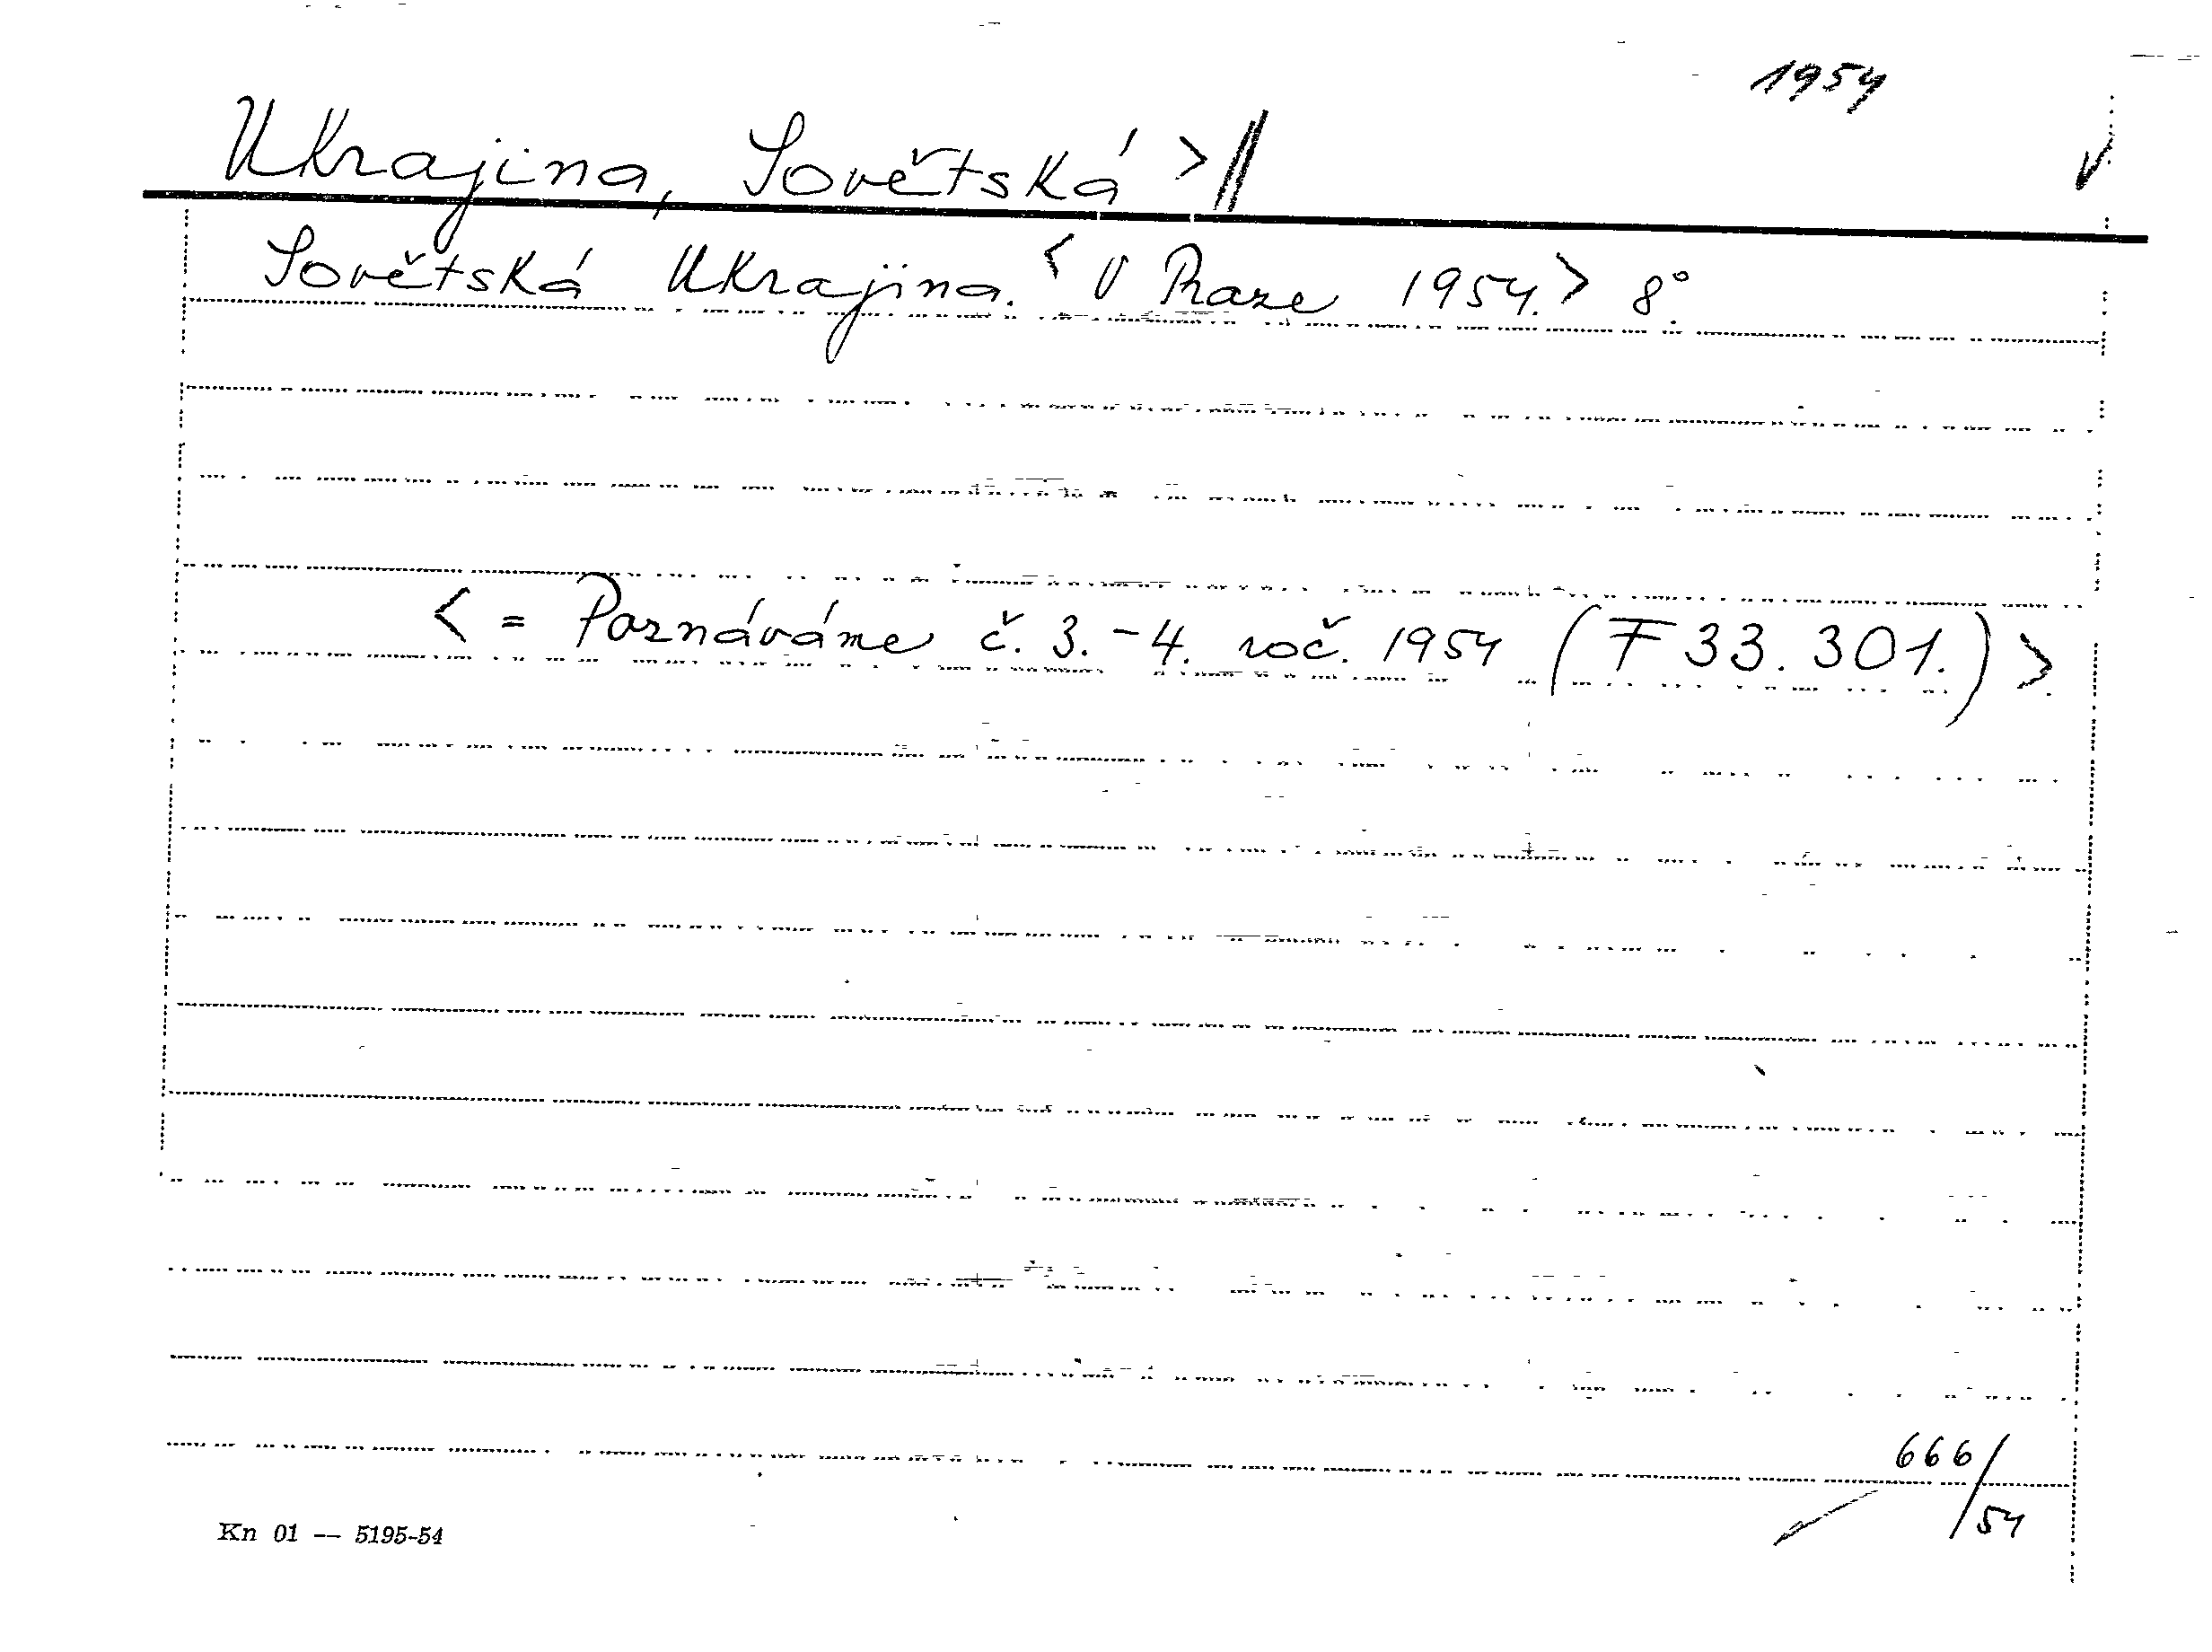 1954
Ukrajina, Sovětská >
Sovětská Ukrajina. < V Praze 1954. > 8°.
< = Poznáváme č. 3.-4. roč. 1954 (F 33.301.) >
666/54
Kn 01 — 5195-54